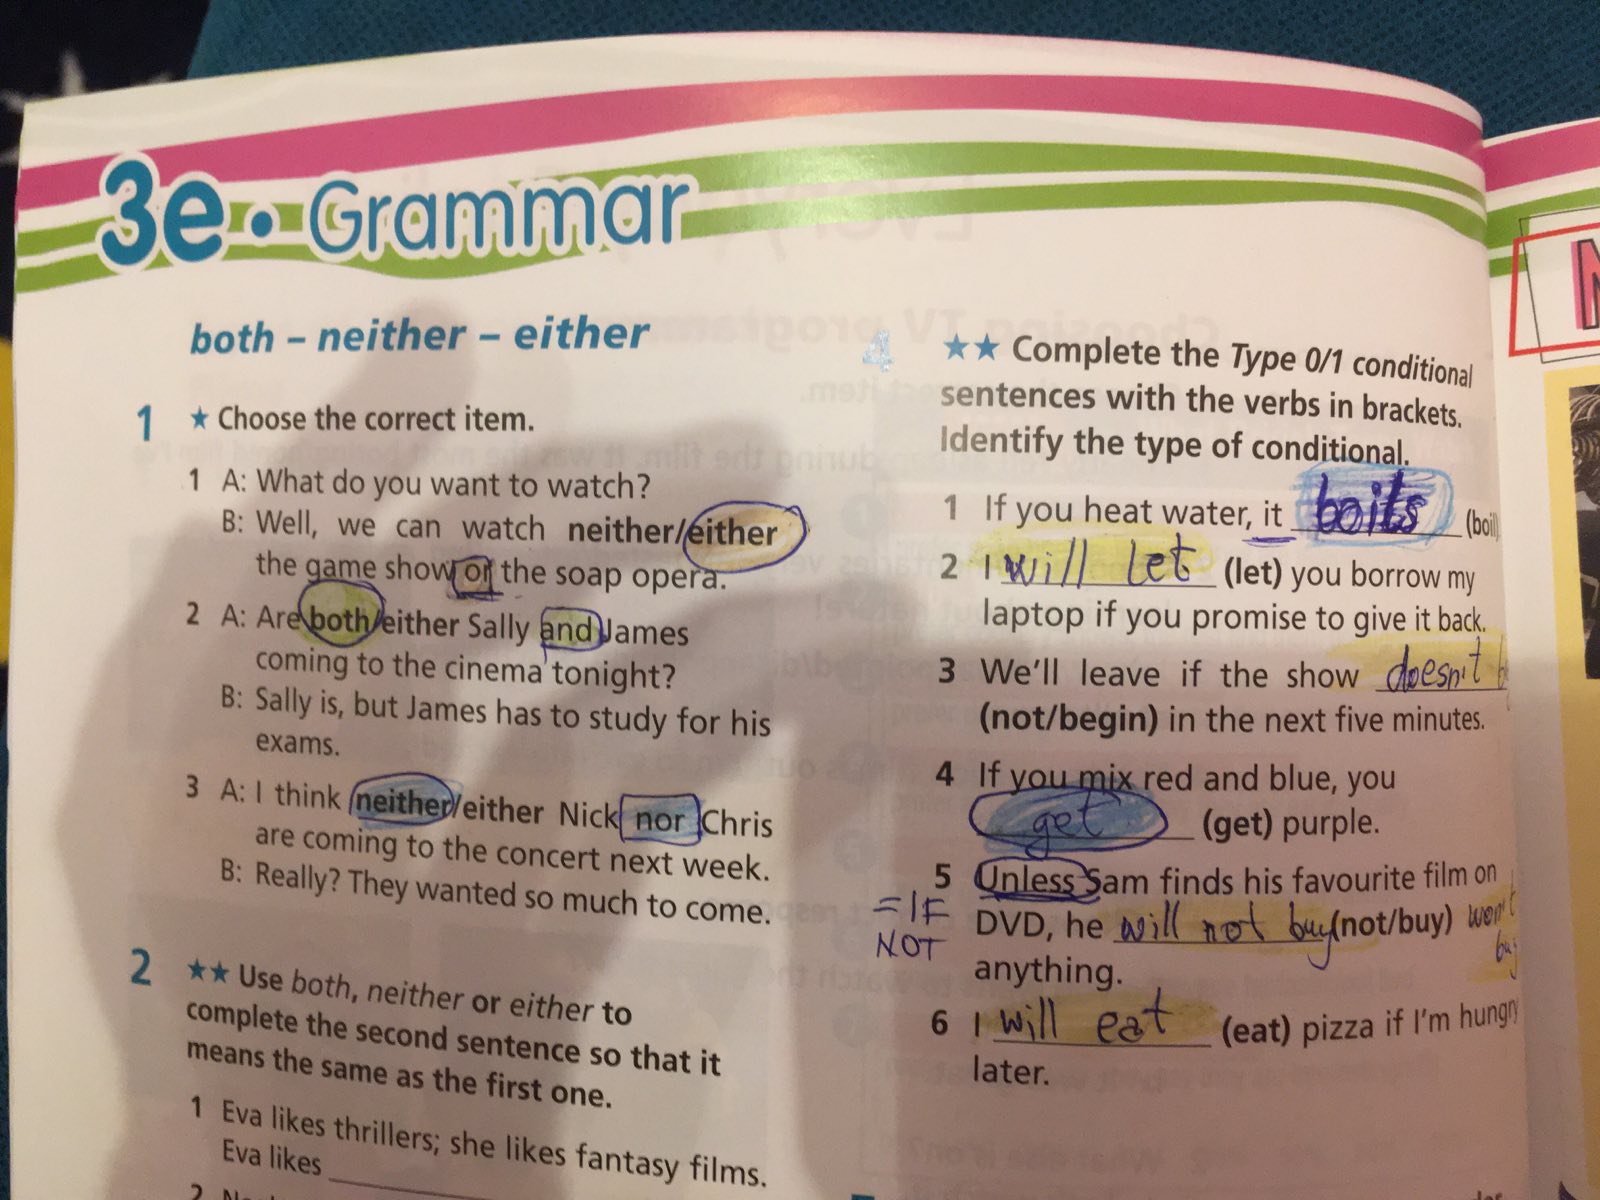 3e • Grammar
both – neither – either
1 ★ Choose the correct item.
1 A: What do you want to watch?
B: Well, we can watch neither/either
the game show or the soap opera.
2 A: Are both/either Sally and James
coming to the cinema tonight?
B: Sally is, but James has to study for his
exams.
3 A: I think neither/either Nick nor Chris
are coming to the concert next week.
B: Really? They wanted so much to come.
2 ★★ Use both, neither or either to
complete the second sentence so that it
means the same as the first one.
1 Eva likes thrillers; she likes fantasy films.
Eva likes
2
4 ★★ Complete the Type 0/1 conditional
sentences with the verbs in brackets.
Identify the type of conditional.
1 If you heat water, it boils (boil)
2 I will let (let) you borrow my
laptop if you promise to give it back.
3 We'll leave if the show doesn't
(not/begin) in the next five minutes.
4 If you mix red and blue, you
get (get) purple.
5 Unless Sam finds his favourite film on
=IF
NOT
DVD, he will not buy (not/buy) won't
buy
anything.
6 I will eat (eat) pizza if I'm hungry
later.